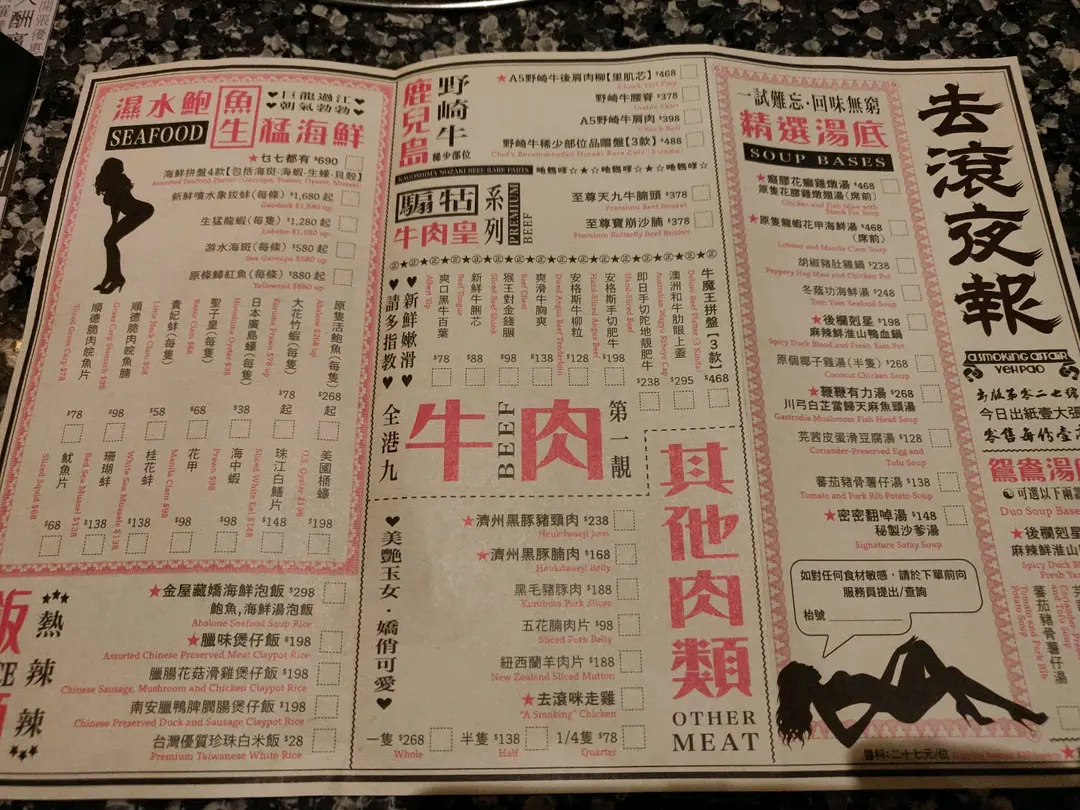 濕水鮑魚生猛海鮮
SEAFOOD
♥巨龍過江♥
♥朝氣勃勃♥
★乜七都有 $690
海鮮拼盤4款【包括海斑·海蝦·生蠔·貝類】
新鮮噴水象拔蚌(每條) $1,680 起
Geoduck $1,680 up
生猛龍蝦(每隻) $1,280 起
Lobster $1,280 up
游水海斑(每條) $580 起
Sea Garoupa $580 up
原條鰤魟魚(每條) $880 起
Yellowtail $880 up
原隻活鮑魚(每隻) $268 起
Abalone $268 up
大花竹蝦(每隻) $78 起
Kuruma Prawn $78 up
日本廣島蠔(每隻) $38
Hiroshima Oyster $38
聖子皇(每隻) $68
Razor Clam $68
貴妃蚌(每隻) $58
順德脆肉鯇魚腩 $98
順德脆肉鯇魚片 $78
美國桶蠔 $198
U.S. Oyster $198
珠江白鱔片 $148
Sliced White Eel $148
海中蝦 $98
Prawn $98
花甲 $98
Manila Clam $98
桂花蚌 $138
White Sea Mussels $138
珊瑚蚌 $138
Red Sea Mussel $138
魷魚片 $68
Sliced Squid $68
熱辣辣
★金屋藏嬌海鮮泡飯 $298
鮑魚,海鮮湯泡飯
Abalone Seafood Soup Rice
★臘味煲仔飯 $198
Assorted Chinese Preserved Meat Claypot Rice
臘腸花菇滑雞煲仔飯 $198
Chinese Sausage, Mushroom and Chicken Claypot Rice
南安臘鴨脾膶腸煲仔飯 $198
Chinese Preserved Duck and Sausage Claypot Rice
台灣優質珍珠白米飯 $28
Premium Taiwanese White Rice
鹿兒島野崎牛稀少部位
KAGOSHIMA NOZAKI BEEF RARE PARTS
★A5野崎牛後肩肉柳【里肌芯】 $468
野崎牛腰脊 $378
A5野崎牛肩肉 $398
Chuck Roll
野崎牛稀少部位品嚐盤【3款】 $488
騸牯牛肉皇系列
PREMIUM BEEF
至尊天九牛腩頭 $378
Premium Beef Brisket
至尊寶崩沙腩 $378
Premium Butterfly Beef Brisket
♥新鮮嫩滑♥
♥請多指教♥
牛魔王拼盤【3款】 $468
澳洲和牛肋眼上蓋 $295
Australian Wagyu Ribeye Cap
即日手切陀地靚肥牛 $238
Hand-Sliced Beef
安格斯手切肥牛 $198
Hand-Sliced Angus Beef
安格斯牛柳粒 $128
Diced Angus Beef Tenderloin
爽滑牛胸爽 $138
Beef Chest
猴王對金錢𦟌 $98
Sliced Beef Shank
新鮮牛脷芯 $88
Beef Tongue
爽口黑牛百葉 $78
全港九牛肉第一靚
BEEF
其他肉類
OTHER MEAT
♥美艷玉女·嬌俏可愛♥
★濟州黑豚豬頸肉 $238
Heukdwaeji Jowl
★濟州黑豚腩肉 $168
Heukdwaeji Belly
黑毛豬豚肉 $188
Kurobuta Pork Slices
五花腩肉片 $98
Sliced Pork Belly
紐西蘭羊肉片 $188
New Zealand Sliced Mutton
★去滾咪走雞
"A Smoking" Chicken
一隻 $268 半隻 $138 1/4隻 $78
Whole Half Quarter
一試難忘·回味無窮
精選湯底
SOUP BASES
原隻花膠雞燉翅湯(席前)
Chicken and Fish Maw with Shark Fin Soup
★原隻龍蝦花甲海鮮湯 $468
(席前)
Lobster and Manila Clam Soup
胡椒豬肚雞鍋 $238
Peppery Hog Maw and Chicken Pot
冬蔭功海鮮湯 $248
Tom Yum Seafood Soup
★後欄剋星 $198
麻辣鮮淮山鴨血鍋
Spicy Duck Blood and Fresh Yam Pot
原個椰子雞湯(半隻) $268
Coconut Chicken Soup
★鞭鞭有力湯 $268
川弓白芷當歸天麻魚頭湯
Gastrodia Mushroom Fish Head Soup
芫茜皮蛋滑豆腐湯 $128
Coriander-Preserved Egg and Tofu Soup
蕃茄豬骨薯仔湯 $138
Tomato and Pork Rib Potato Soup
★密密翻啅湯 $148
秘製沙爹湯
Signature Satay Soup
如對任何食材敏感,請於下單前向
服務員提出/查詢
枱號
醬料:二十七元/位
去滾夜報
A SMOKING AFFAIR
YEH PAO
出版第零二七號
今日出紙壹大張
鴛鴦湯底
可選以下兩款
Duo Soup Bases
★後欄剋星
麻辣鮮淮山
Spicy Duck
蕃茄豬骨薯仔湯